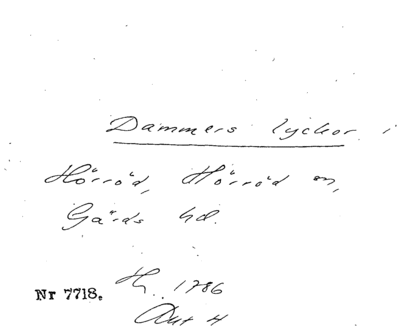 Dammers lyckor i
Hörröd, Hörröd sn,
Gärds hd.
Nr 7718.
H. 1786
Akt 4